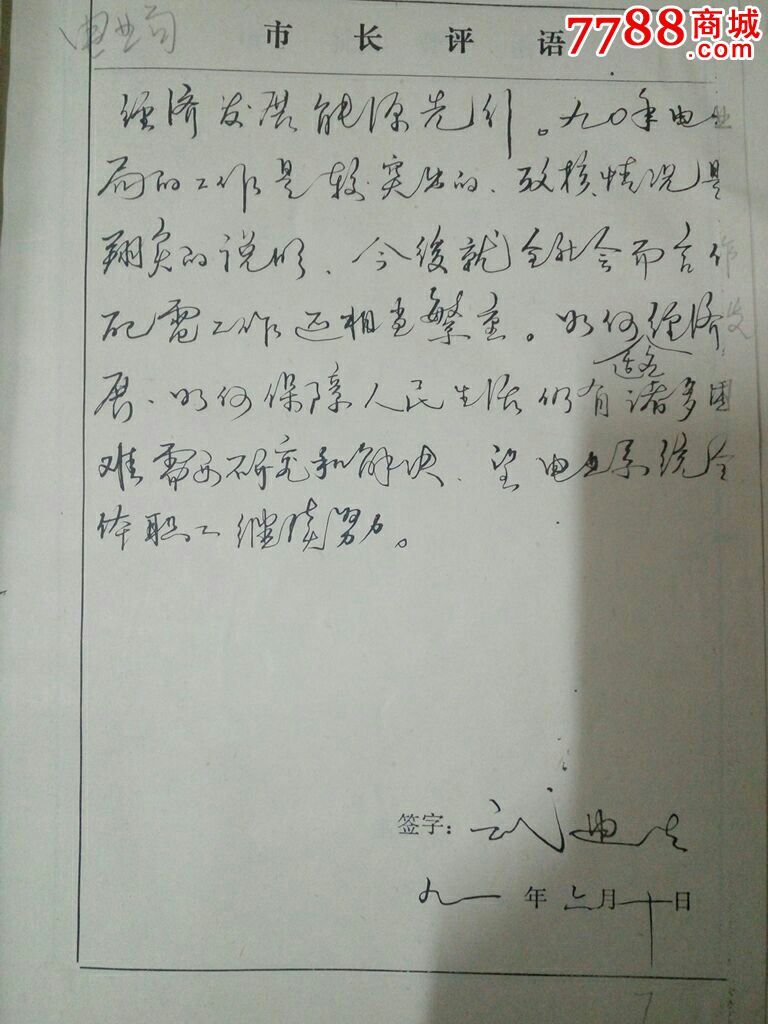 电业局
7788商城
.com
市长评语
经济发展能源先行。九〇年电业
局的工作是较突出的、考核情况是
翔实的说明、今後就全社会而言作
配電工作还相当繁重。如何经济发
适应
展、如何保障人民生活仍有诸多困
难需要研究和解决、望电业系统全
体职工继续努力。
签字:武
九一年 月十日